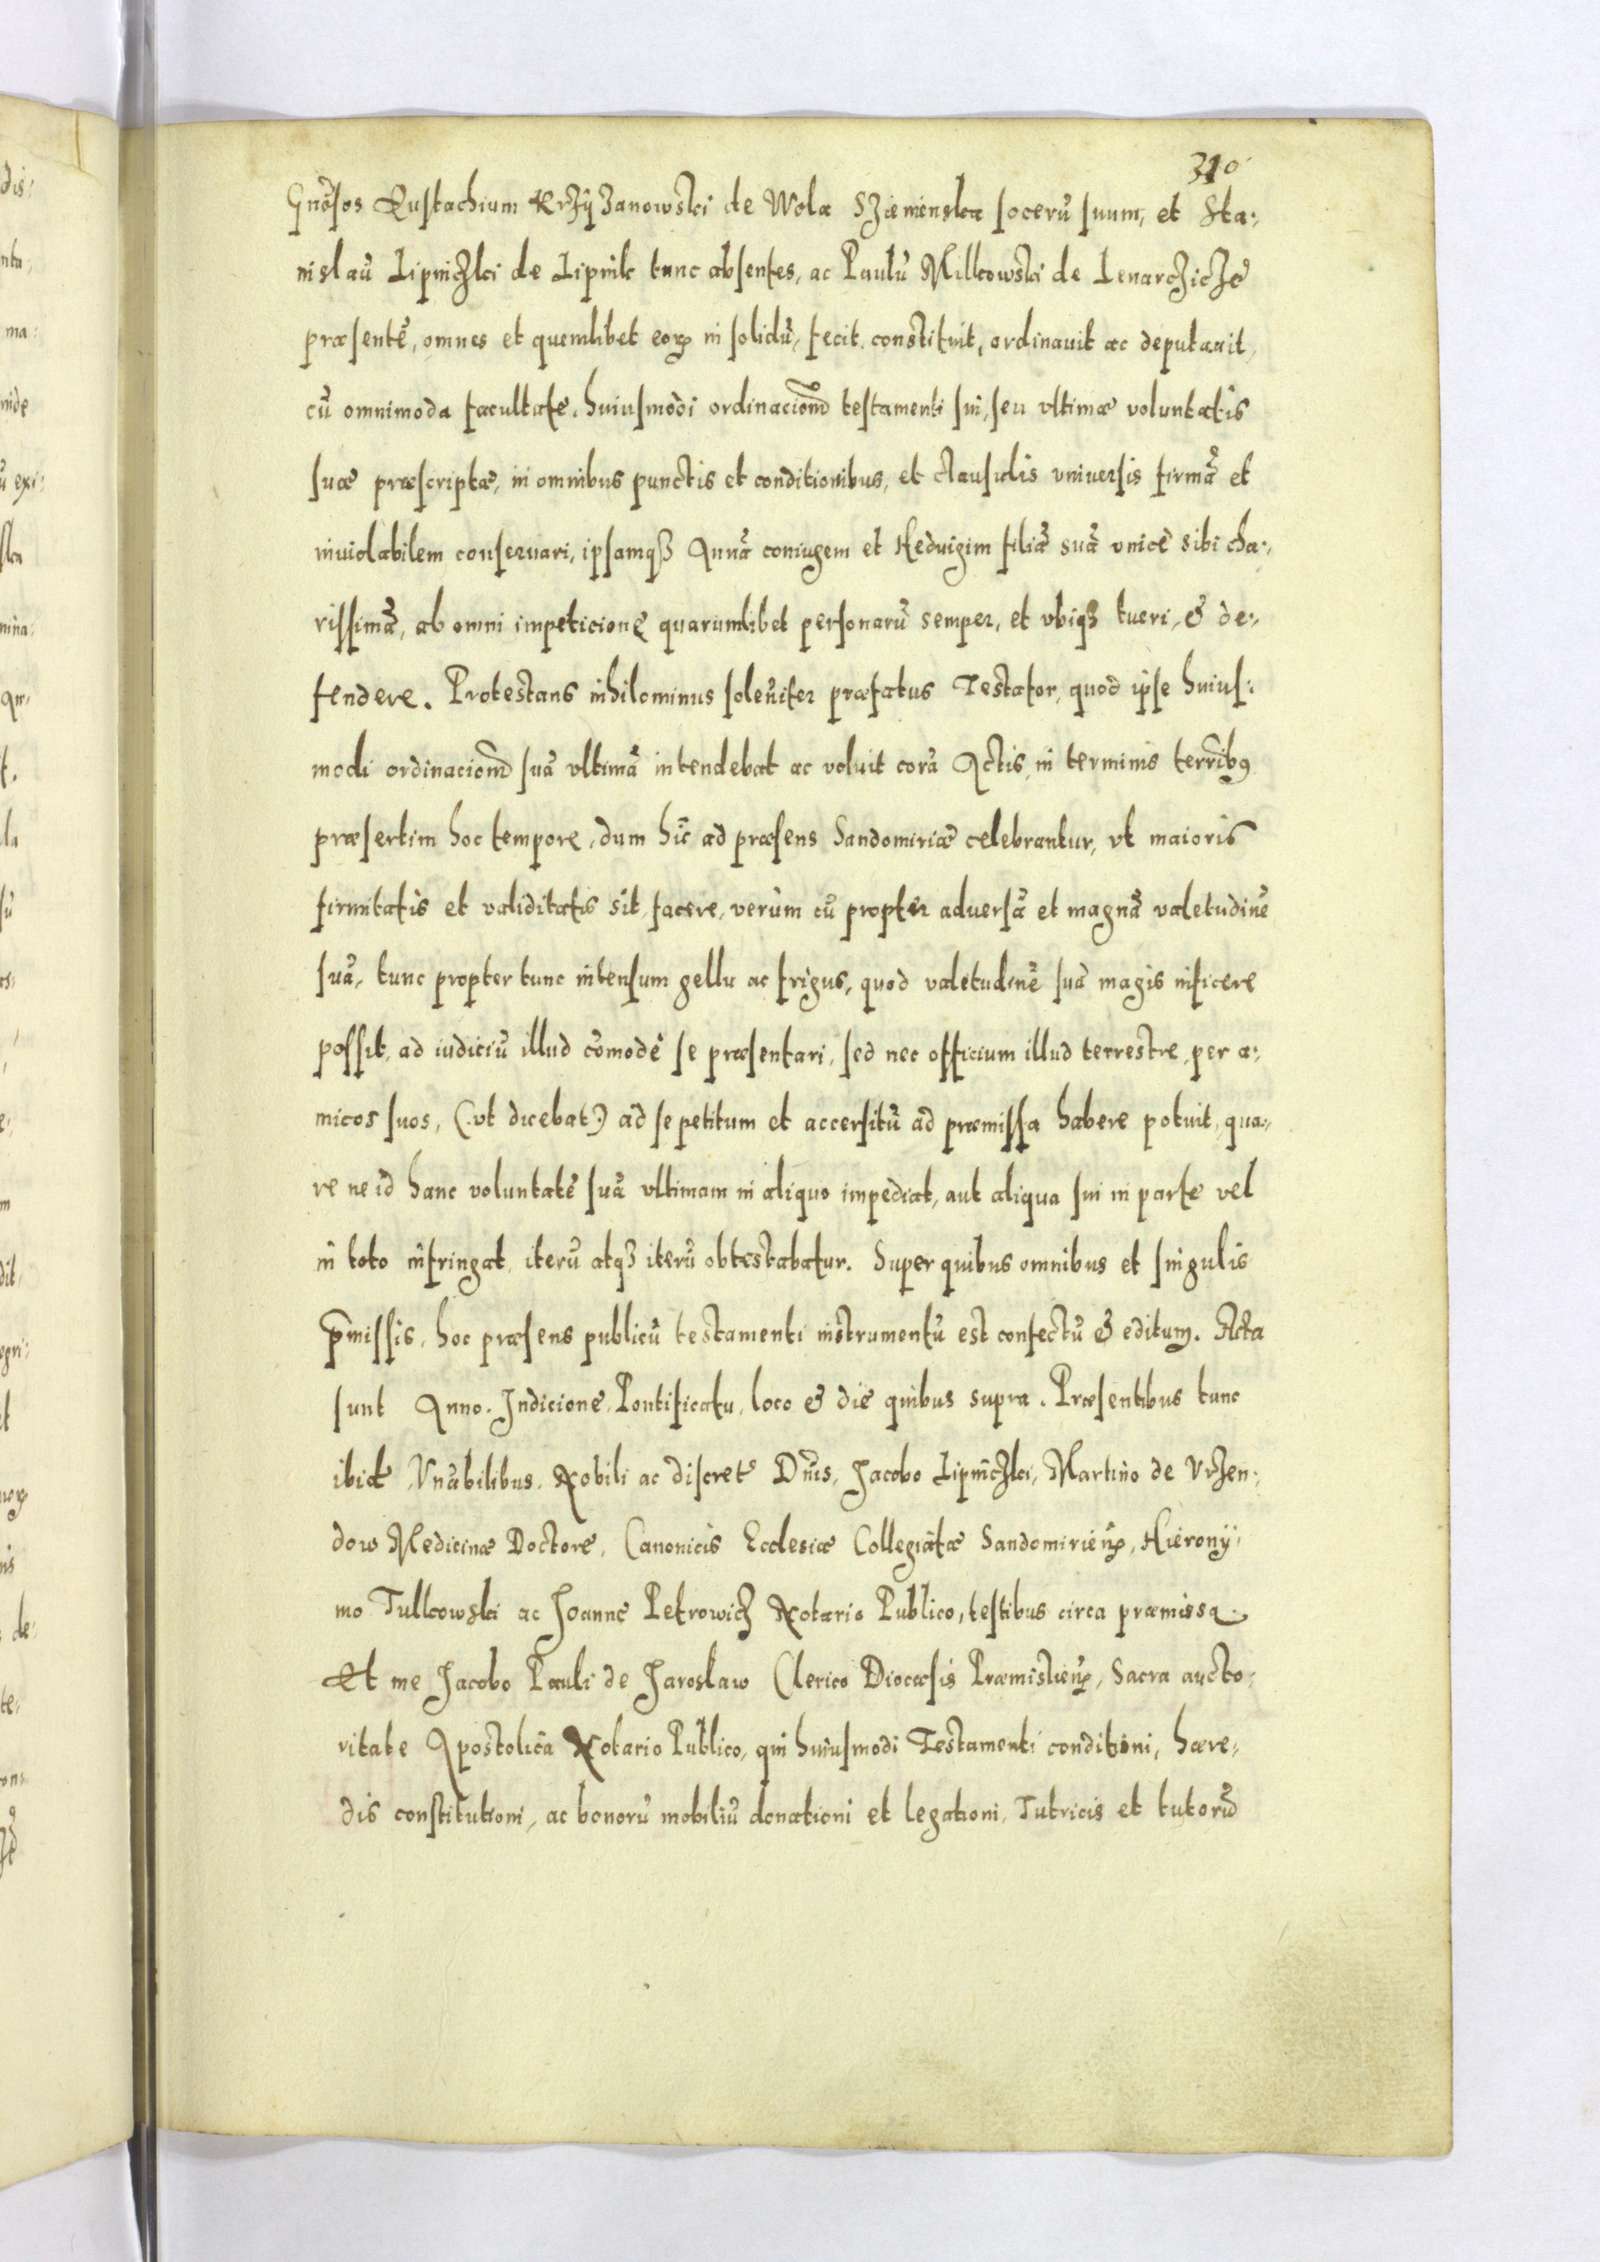 310
Gnõsos Eustachium Krzÿzanowski de Wola Sziemienska socerũ suum, et Sta⸗
nislaũ Lipniczki de Lipnik tunc absentes, ac Paulũ Milkowski de Lenarczicze
præsentẽ, omnes et quemlibet eoꝝ in solidũ, fecit, constituit, ordinauit ac deputauit,
cũ omnimoda facultate, huiusmodi ordinacionẽ testamenti sui, seu vltimæ voluntatis
suæ præscriptæ, in omnibus punctis et conditionibus, et clausulis vniuersis firmã et
inuiolabilem conseruari, ipsamqꝫ Annã coniugem et Heduigim filiã suã vnicè sibi cha⸗
rissimã, ab omni impeticione quarumlibet personarũ semper, et vbiqꝫ tueri, & de⸗
fendere. Protestans nihilominus solẽniter præfatus Testator, quod ipse huius⸗
modi ordinacionẽ suã vltimã intendebat ac voluit corã Actis, in terminis terr̃ibꝰ
præsertim hoc tempore, dum hic ad præsens Sandomiriæ celebrantur, vt maioris
firmitatis et validitatis sit, facere, verùm cũ propter aduersã et magnã valetudinẽ
suã, tunc propter tunc intensum gellu ac frigus, quod valetudinẽ suã magis inficere
possit, ad iudiciũ illud cõmodè se præsentari, sed nec officium illud terrestre, per a⸗
micos suos, (vt dicebat) ad se petitum et accersitũ ad præmissa habere potuit, qua⸗
re ne id hanc voluntatẽ suã vltimam in aliquo impediat, aut aliqua sui in parte vel
in toto infringat, iterũ atqꝫ iterũ obtestabatur. Super quibus omnibus et singulis
p̃missis, hoc præsens publicũ testamenti instrumentũ est confectũ & editum. Acta
sunt Anno, Indicione, Pontificatu, loco & die quibus supra. Præsentibus tunc
ibidẽ Vñabilibus, Nobili ac discret̃ Dñis, Jacobo Lipniczki, Martino de Vrzen⸗
dow Medicinæ Doctore, Canonicis Ecclesiæ Collegiatæ Sandomirieñ, Hierony⸗
mo Tulkowski ac Joanne Petrowicz Notario Publico, testibus circa præmissa.
Et me Jacobo Pauli de Jaroslaw Clerico Diocæsis Præmislieñ, Sacra aucto⸗
ritate Apostolica Notario Publico, qui huiusmodi Testamenti conditioni, hære⸗
dis constitutioni, ac bonorũ mobiliũ donationi et legationi, Tutricis et tutorũ